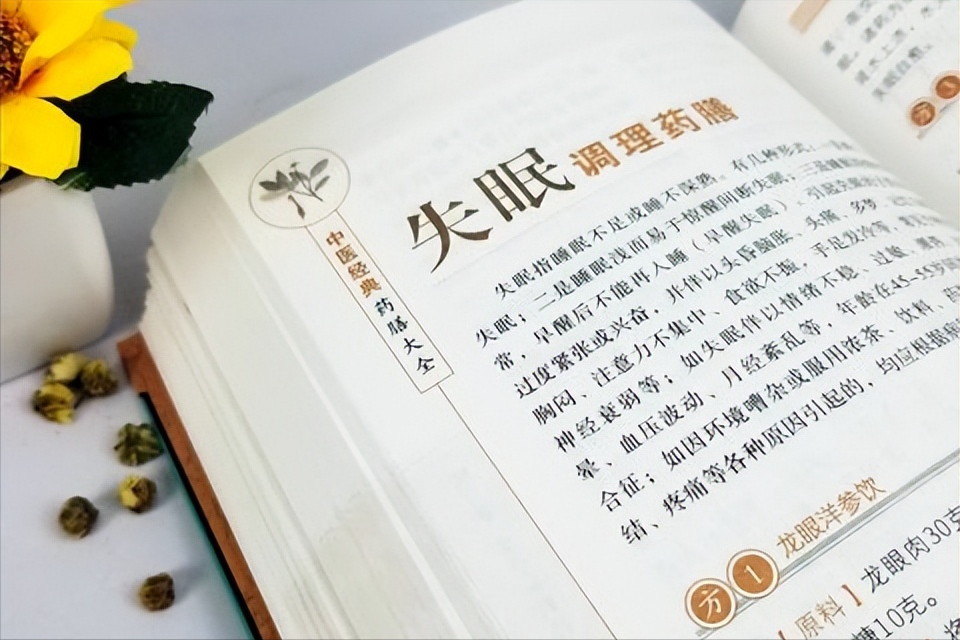 中医经典药膳大全
失眠调理药膳
失眠指睡眠不足或睡不深熟。有几种形式：一
失眠；二是睡眠浅而易于惊醒间断失眠；三是睡眠
常，早醒后不能再入睡（早醒失眠）。引起失眠的
过度紧张或兴奋，并伴以头昏脑胀、头痛、多梦
胸闷、注意力不集中、食欲不振，手足发冷等，常见
神经衰弱等；如失眠伴以情绪不稳、过敏、潮
晕、血压波动、月经紊乱等，年龄在45-55岁
合征；如因环境嘈杂或服用浓茶、饮料、药
结、疼痛等各种原因引起的，均应根据
方1 龙眼洋参饮
【原料】龙眼肉30克
糖10克。
方